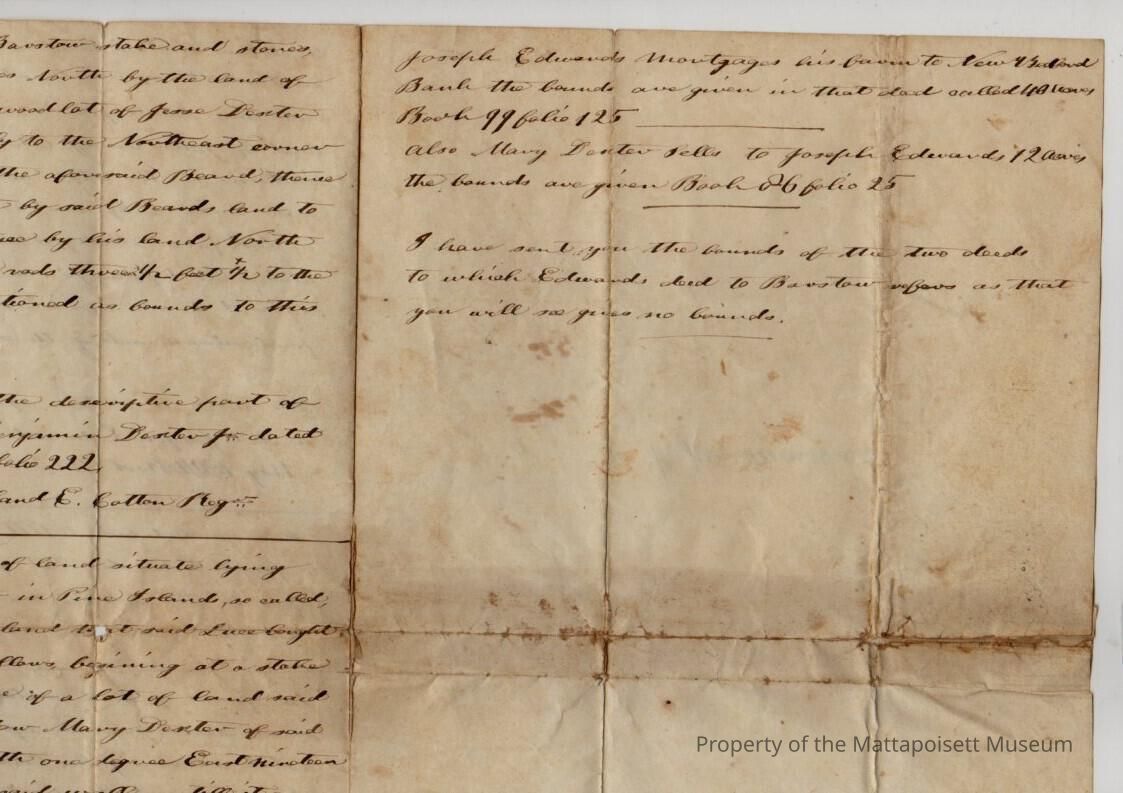 Barstow stake and stones,
es North by the land of
woodlot of Jesse Dexter
y to the Northeast corner
the aforesaid Beard, thence
by said Beards land to
by his land North
rods three 1/2 feet 1/2 to the
tioned as bounds to this
the descriptive part of
enjamin Dexter Jr. dated
folio 222
land E. Cotton Regr
of land situate lying
in Pine Islands, so called,
land that said Luce bought
llows, begining at a stake
e of a lot of land said
ow Mary Dexter of said
th one degree East nineteen
Joseph Edwards Mortgages his farm to New Bedford
Bank the bounds are given in that deed called 40 acres
Book 99 folio 125
Also Mary Dexter sells to Joseph Edwards 12 acres
the bounds are given Book 86 folio 25
I have sent you the bounds of the two deeds
to which Edwards deed to Barstow refers as that
you will see gives no bounds.
Property of the Mattapoisett Museum